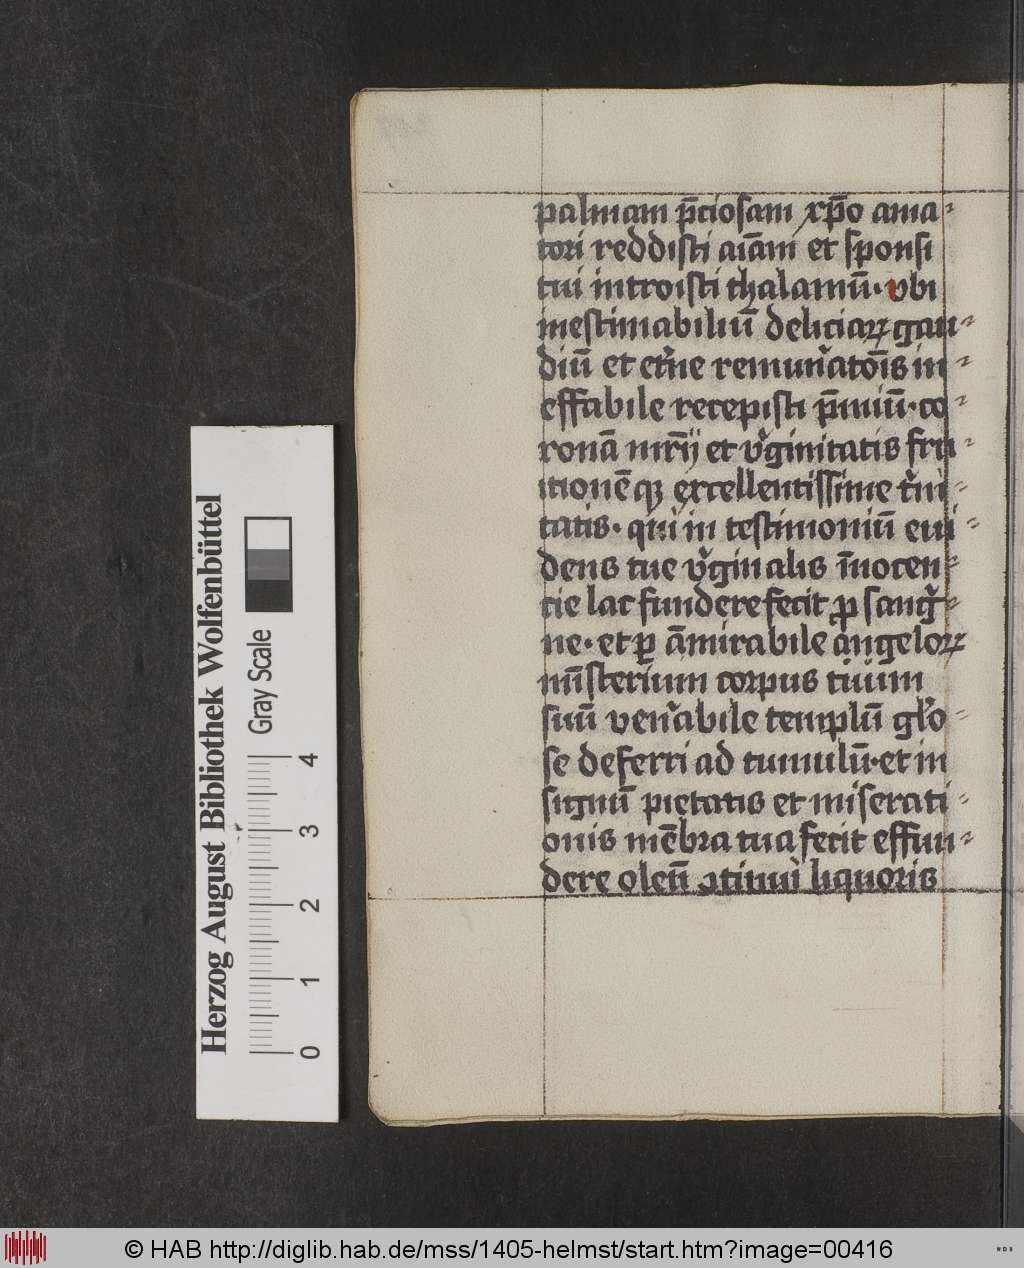 palmam p̄ciosam xp̄o ama-
tori reddisti aīam et sponsi
tui introisti thalamū. vbi
inestimabiliū deliciaꝝ gau-
diū et et̉ne remun̉atōis in-
effabile recepisti p̄miū. co-
ronā mr̄ij et v̉ginitatis fru-
itionē qꝫ excellentissime t̉ni-
tatis. qui in testimoniū eui-
dens tue v̉ginalis īnocen-
cie lac fundere fecit ꝓ sang̉-
ne. et ꝑ āmirabile angeloꝝ
mīsterium corpus tuum
suū ven̉abile templū gl̉o-
se deferri ad tumulū. et in
signū pietatis et miserati-
onis mēbra tua fecit effun-
dere oleū ꝯtinui liquoris
Herzog August Bibliothek Wolfenbüttel
Gray Scale
0 1 2 3 4
© HAB http://diglib.hab.de/mss/1405-helmst/start.htm?image=00416